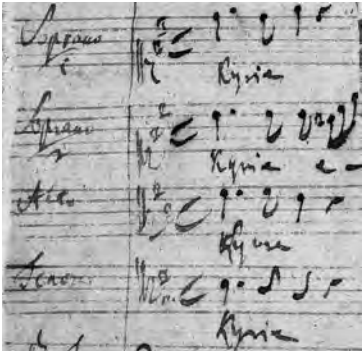 Soprano
1
Kyrie
Soprano
2
Kyrie e-
Alto
Kyrie
Tenore
Kyrie